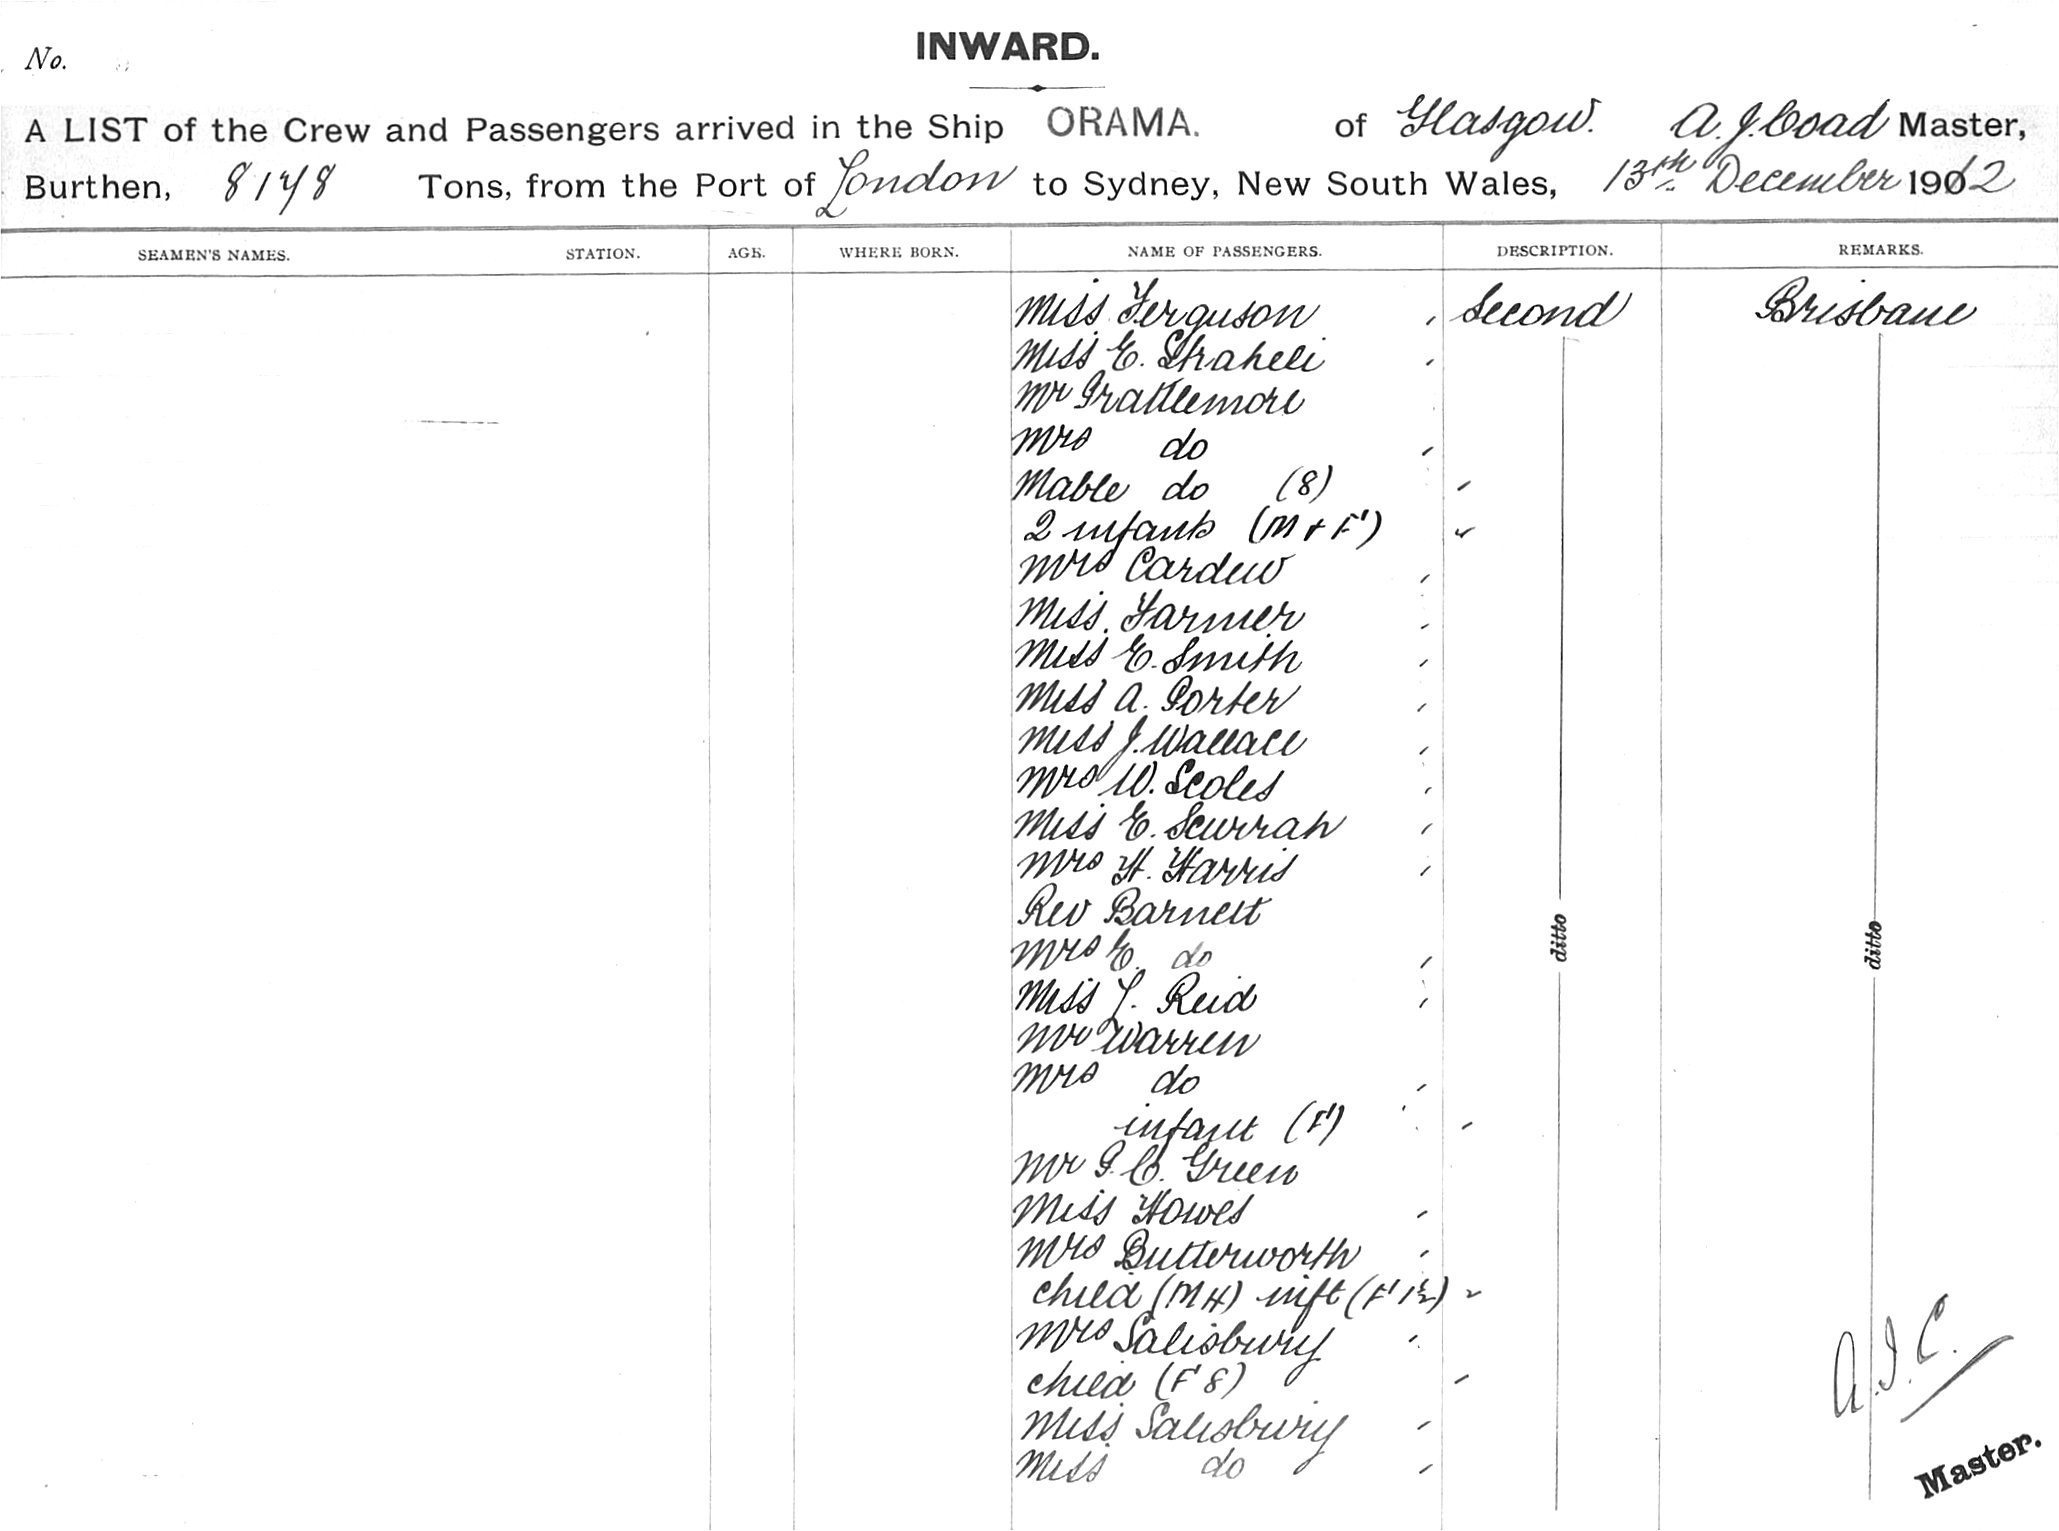 INWARD.
No.
A LIST of the Crew and Passengers arrived in the Ship ORAMA. of Glasgow. A. J. Coad Master,
Burthen, 8178 Tons, from the Port of London to Sydney, New South Wales, 13th December 1912
SEAMEN'S NAMES. STATION. AGE. WHERE BORN. NAME OF PASSENGERS. DESCRIPTION. REMARKS.
Miss Ferguson Second Brisbane
Miss E.
Mr Grattlemore
Mrs do
Mable do (8)
2 infants (M + F)
Mrs Cardew
Miss Farmer
Miss E. Smith
Miss A. Porter
Miss J. Wallace
Mrs W. Scoles
Miss E. Scurrah
Mrs H. Harris
Rev Barnett
Mrs E. do ditto ditto
Miss J. Reid
Mr Warren
Mrs do
infant (F)
Mr G. C. Green
Miss Howes
Mrs Butterworth
child (M 4) inft (F 1½)
Mrs Salisbury
child (F 8)
Miss Salisbury
Miss do
A. J. C.
Master.